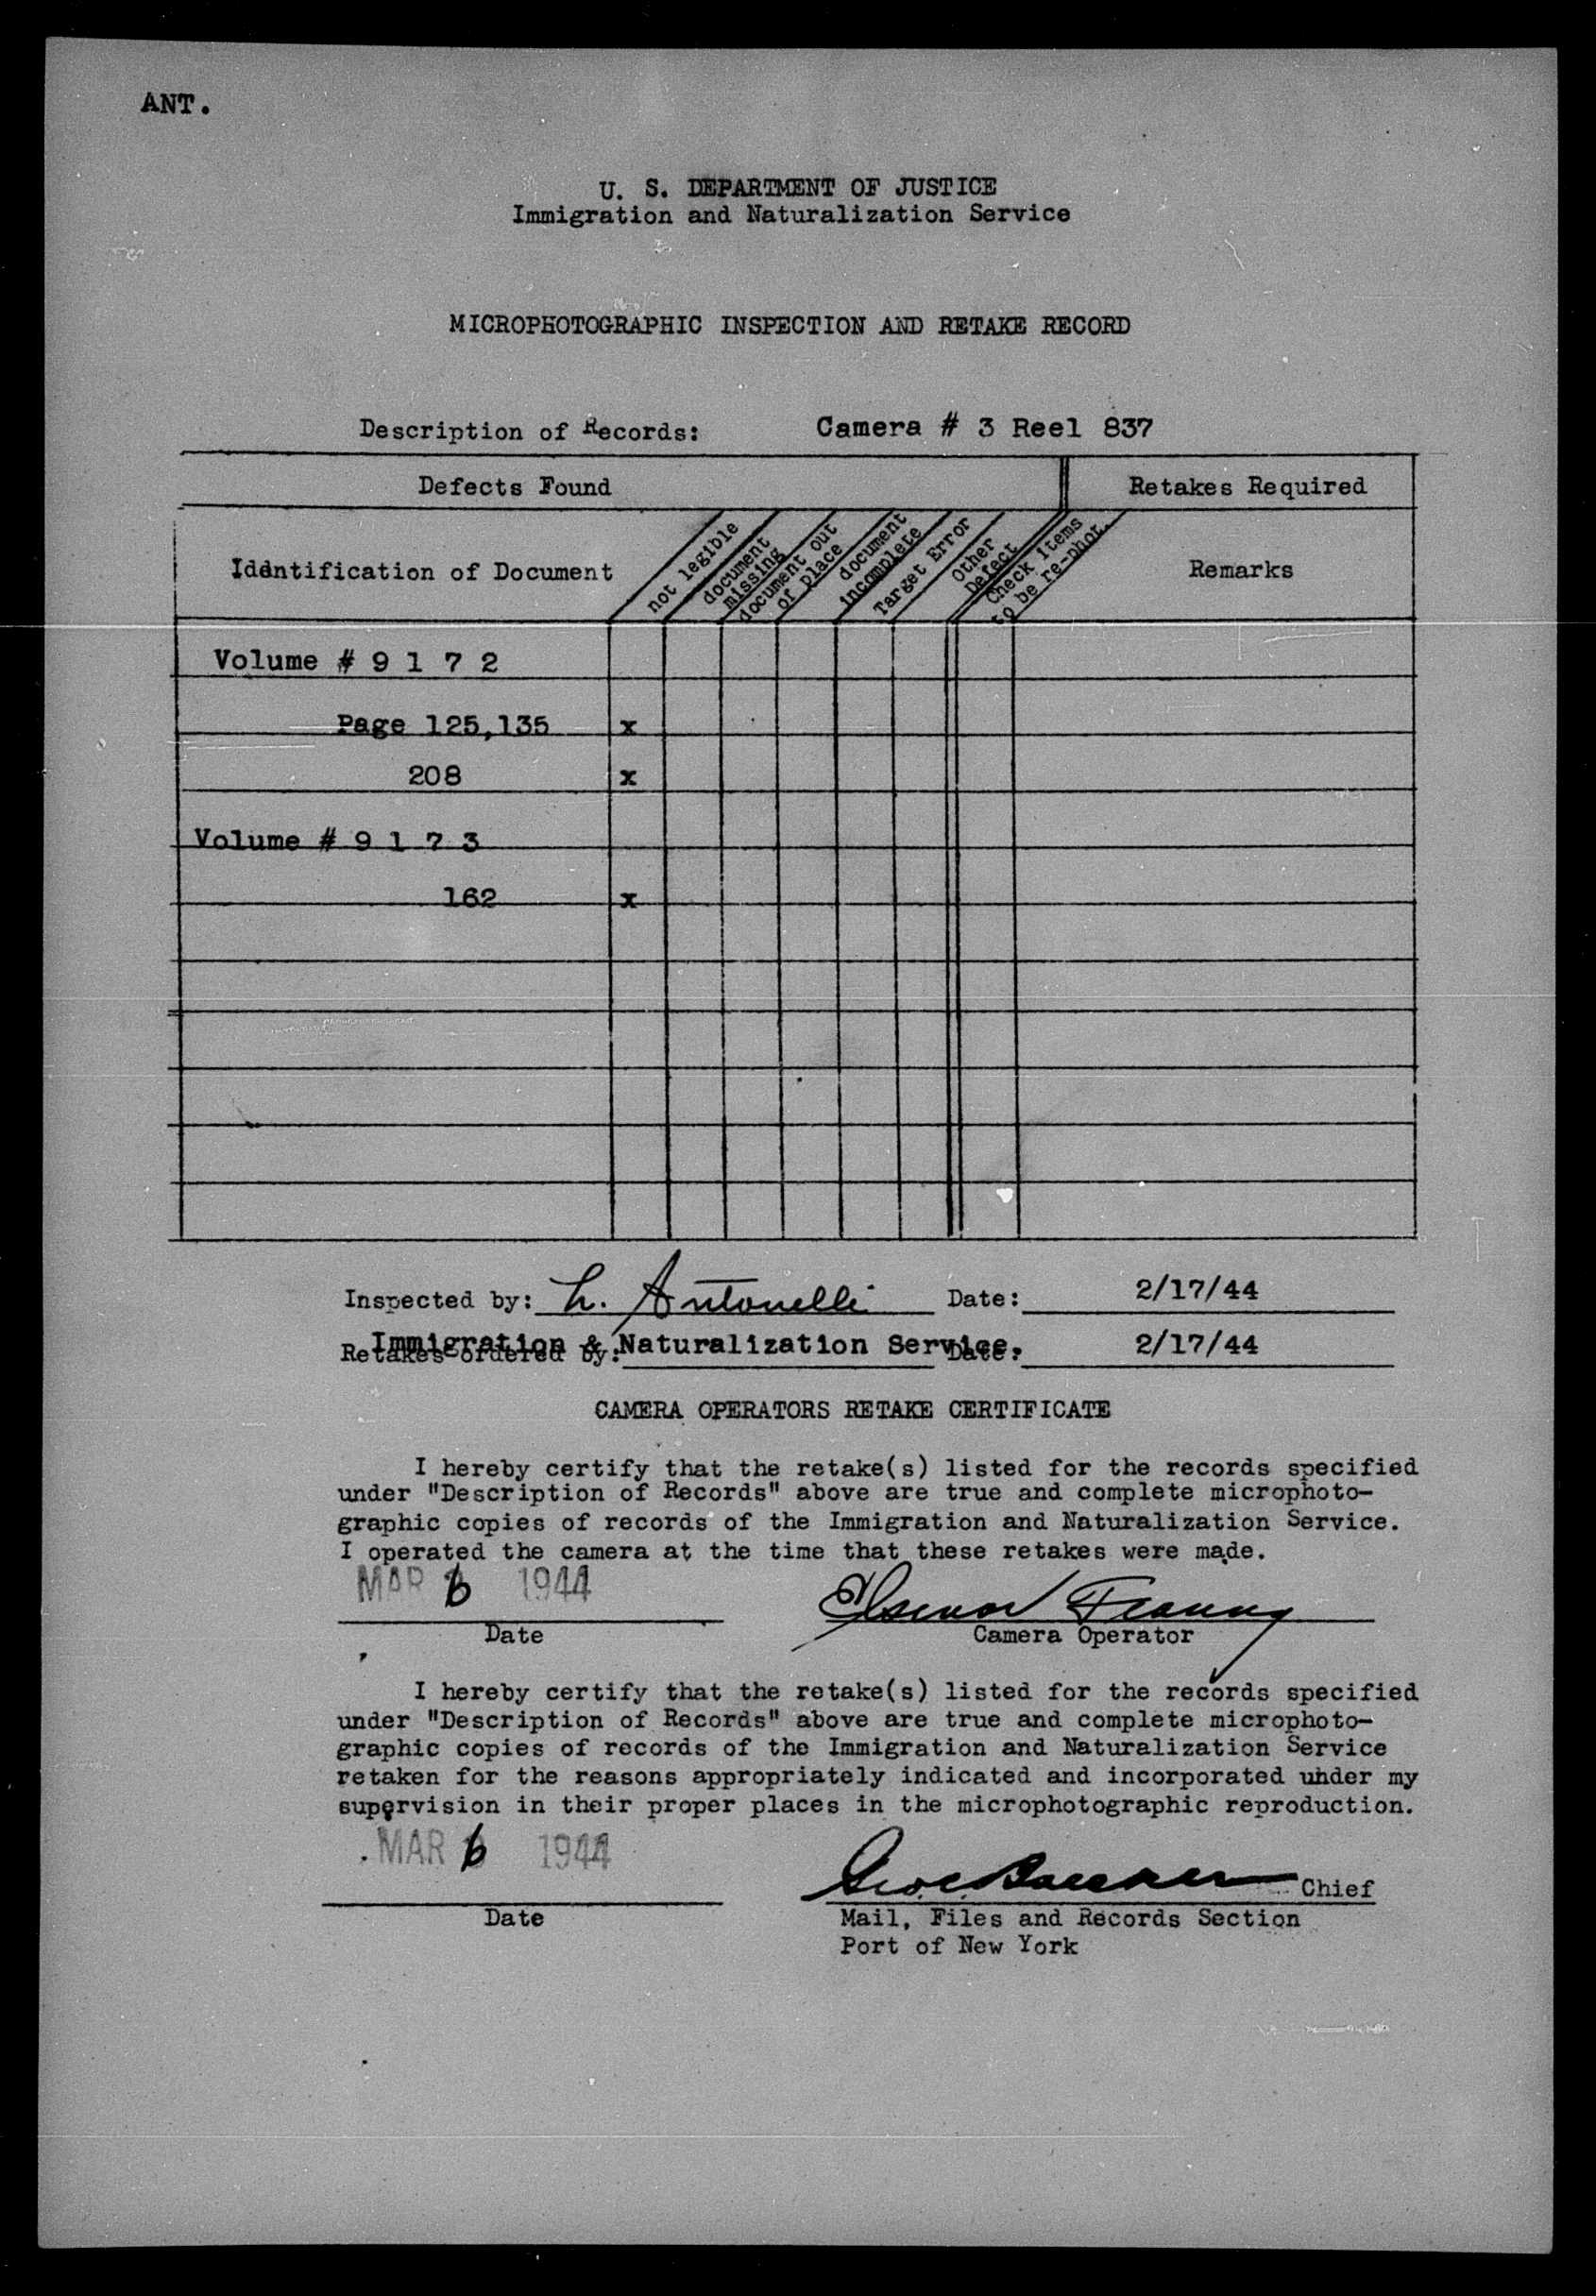 ANT.
U. S. DEPARTMENT OF JUSTICE
Immigration and Naturalization Service
MICROPHOTOGRAPHIC INSPECTION AND RETAKE RECORD
Description of Records: Camera # 3 Reel 837
Defects Found Retakes Required
Identification of Document not legible document missing document out of place document incomplete Target Error Other Defect Check items to be re-phot. Remarks
Volume # 9 1 7 2
Page 125,135 x
208 x
Volume # 9 1 7 3
162 x
Inspected by: L. Antonelli Date: 2/17/44
Immigration & Naturalization Service.
Retakes ordered by: Date: 2/17/44
CAMERA OPERATORS RETAKE CERTIFICATE
I hereby certify that the retake(s) listed for the records specified
under "Description of Records" above are true and complete microphoto-
graphic copies of records of the Immigration and Naturalization Service.
I operated the camera at the time that these retakes were made.
MAR 6 1944
Date Camera Operator
I hereby certify that the retake(s) listed for the records specified
under "Description of Records" above are true and complete microphoto-
graphic copies of records of the Immigration and Naturalization Service
retaken for the reasons appropriately indicated and incorporated under my
supervision in their proper places in the microphotographic reproduction.
MAR 6 1944
Chief
Date Mail, Files and Records Section
Port of New York